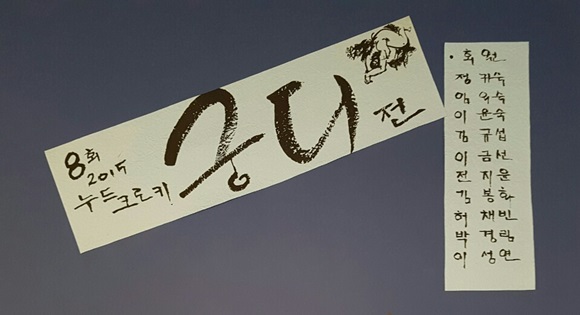 8회
2015
누드크로키
궁디
전
• 회원
정 규숙
임 옥숙
이 윤숙
김 규섭
이 금선
전 지윤
김 봉화
허 채빈
박 경림
이 성연